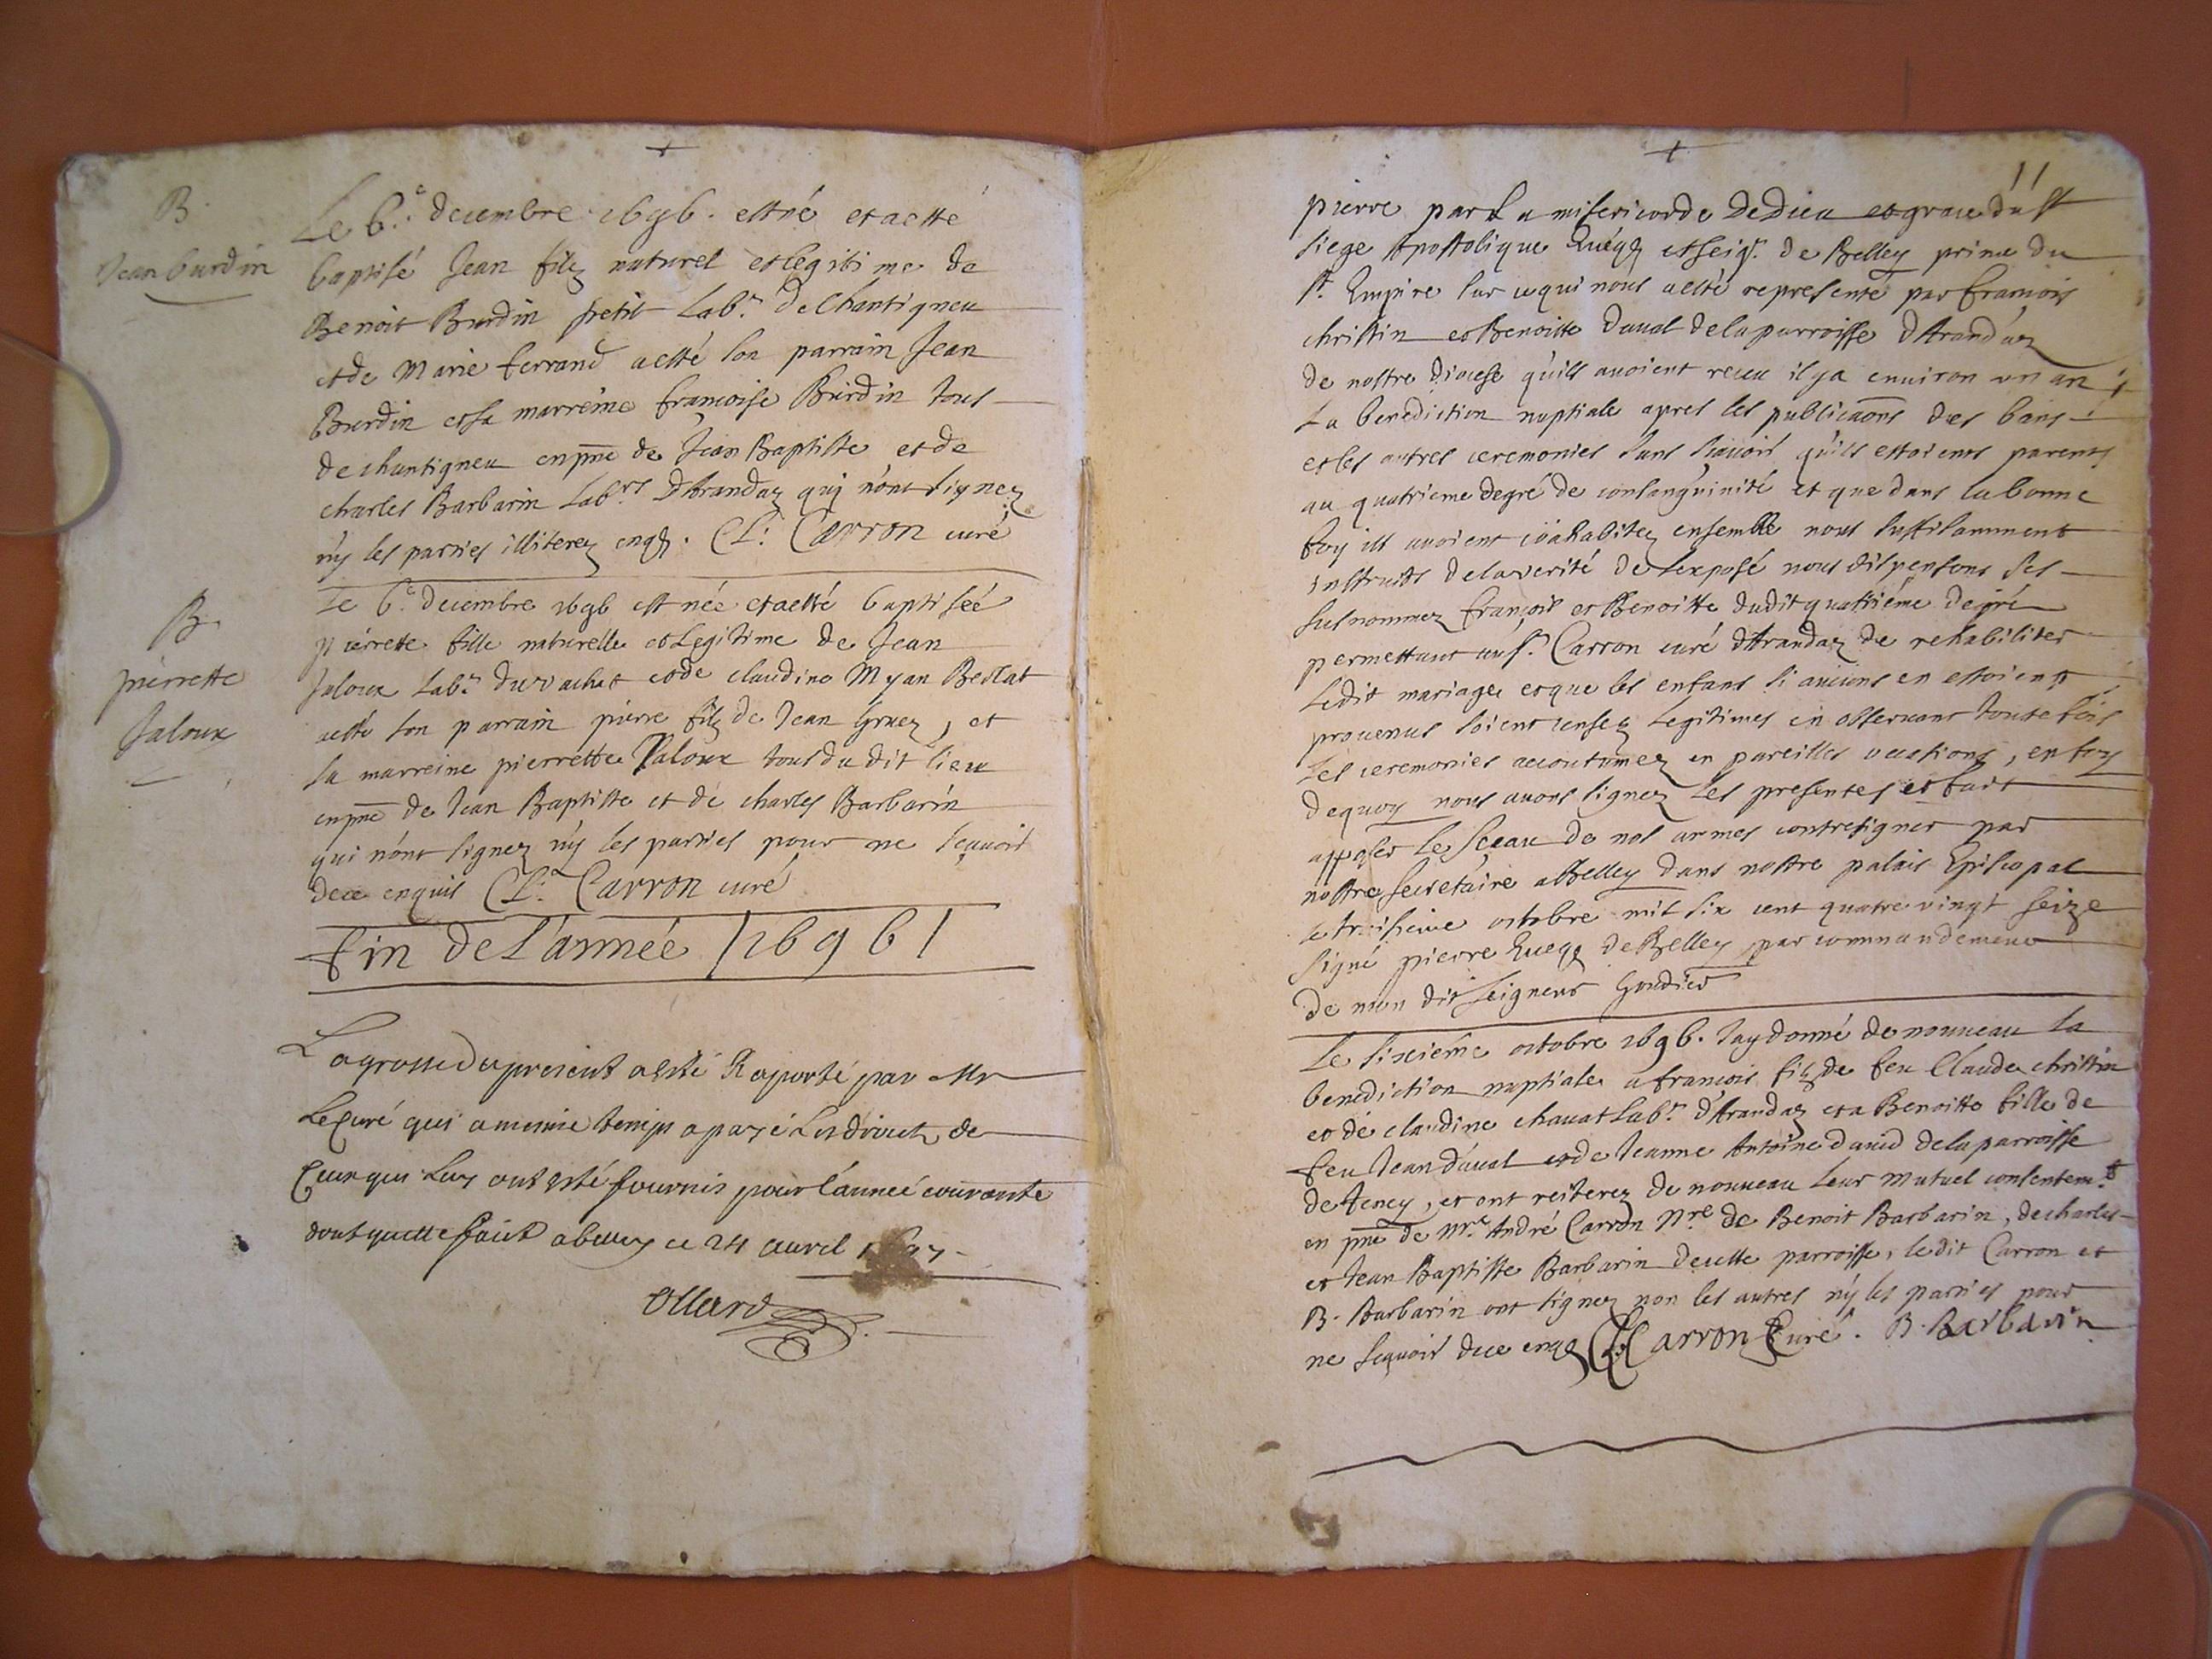 B.
Jean burdin
Le 6.e decembre 1696. est né et a esté
baptisé Jean filz naturel et legitime de
Benoit Burdin petit Labr. de Chantigneu
et de Marie ferrand a esté son parrain Jean
Burdin et sa marreine francoise Burdin tous
de chantigneu en pnce de Jean Baptiste et de
charles Barbarin Labrs d'Arandaz qui n'ont signez
ny les parties illiterez enqs. Cl: Carron curé
B
pierrette
Jaloux
Le 6.e decembre 1696 est née et a esté baptiseé
pierrette fille naturelle et Legitime de Jean
Jaloux Labr. du vachat et de claudine Myan Beslat
a esté son parrain pierre filz de Jean Gruez, et
sa marreine pierrette Jaloux tous du dit lieu
en pnce de Jean Baptiste et de charles Barbarin
qui n'ont signez ny les parties pour ne sçauoir
de ce enquis Cl: Carron curé
fin de L'année | 1696 |
La grosse du present a esté Raporté par Mr
Le Curé qui a mesme temps a payé Les droicts de
Ceux qui Luy ont esté fournis pour l'année courante
dont quitte faict a belley ce 24 auril
Ollard
11
pierre par La misericorde de Dieu et grace du st
siege Apostolique Euéqe et seigr. de Belley prince du
st. Empire sur ce qui nous a esté representé par francois
christin et Benoitte duual de la parroisse d'Arandaz
de nostre diocese qu'ils auoient receu il y a enuiron un an
La benediction nuptiale apres les publicaons des bans
et les autres ceremonies sans sçauoir qu'ils estoient parents
au quatrieme degré de consanguinité et que dans la bonne
foy ils auoient coahabitez ensemble nous suffisamment
instruits de la verité de l'exposé nous dispensons les
susnommez françois et Benoitte dudit quattriéme degré
permettant au sr. Carron curé d'Arandaz de rehabiliter
Ledit mariage et que les enfans si aucuns en estoient
prouenus soient censez Legitimes en obseruant toutefois
Les ceremonies accoutumez en pareilles occasions, en foy
de quoy nous auons signez Les presentes et fait
apposer Le sceau de nos armes contresigner par
nostre secretaire a Belley dans nostre palais Episcopal
le troisieme octobre mil six cent quatre vingt seize
signé pierre Eueqe de Belley par commandement
de mon dit seigneur Gondier
Le sixieme octobre 1696. Jay donné de nouueau la
benediction nuptiale a francois filz de feu Claude christin
et de claudine chauat Labr. d'Arandaz et a Benoitte fille de
feu Jean duual et de Jeanne Antoine dauid de la parroisse
de Teney, et ont reiterez de nouueau leur mutuel consentemt
en pnce de Mre André Carron Nre de Benoit Barbarin, de charles
et Jean Baptiste Barbarin de cette parroisse, ledit Carron et
B. Barbarin ont signez non les autres ny les parties pour
ne sçauoir de ce enqs Cl Carron Curé. B. Barbarin